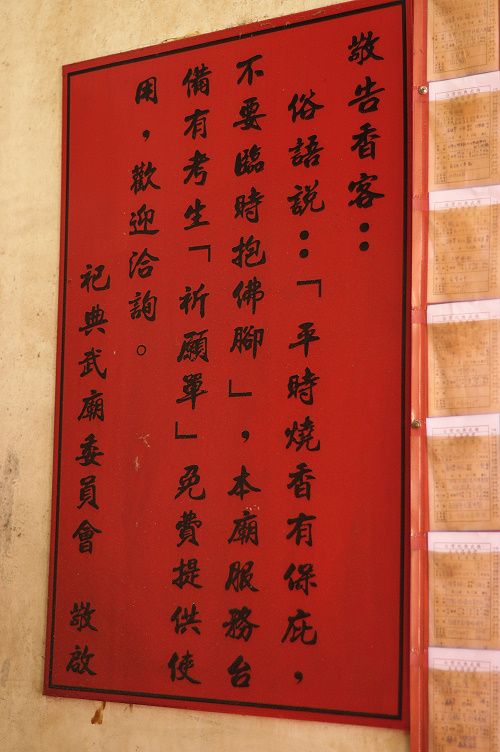 敬告香客：
俗語說：「平時燒香有保庇，
不要臨時抱佛腳」，本廟服務台
備有考生「祈願單」免費提供使
用，歡迎洽詢。
祀典武廟委員會 敬啟